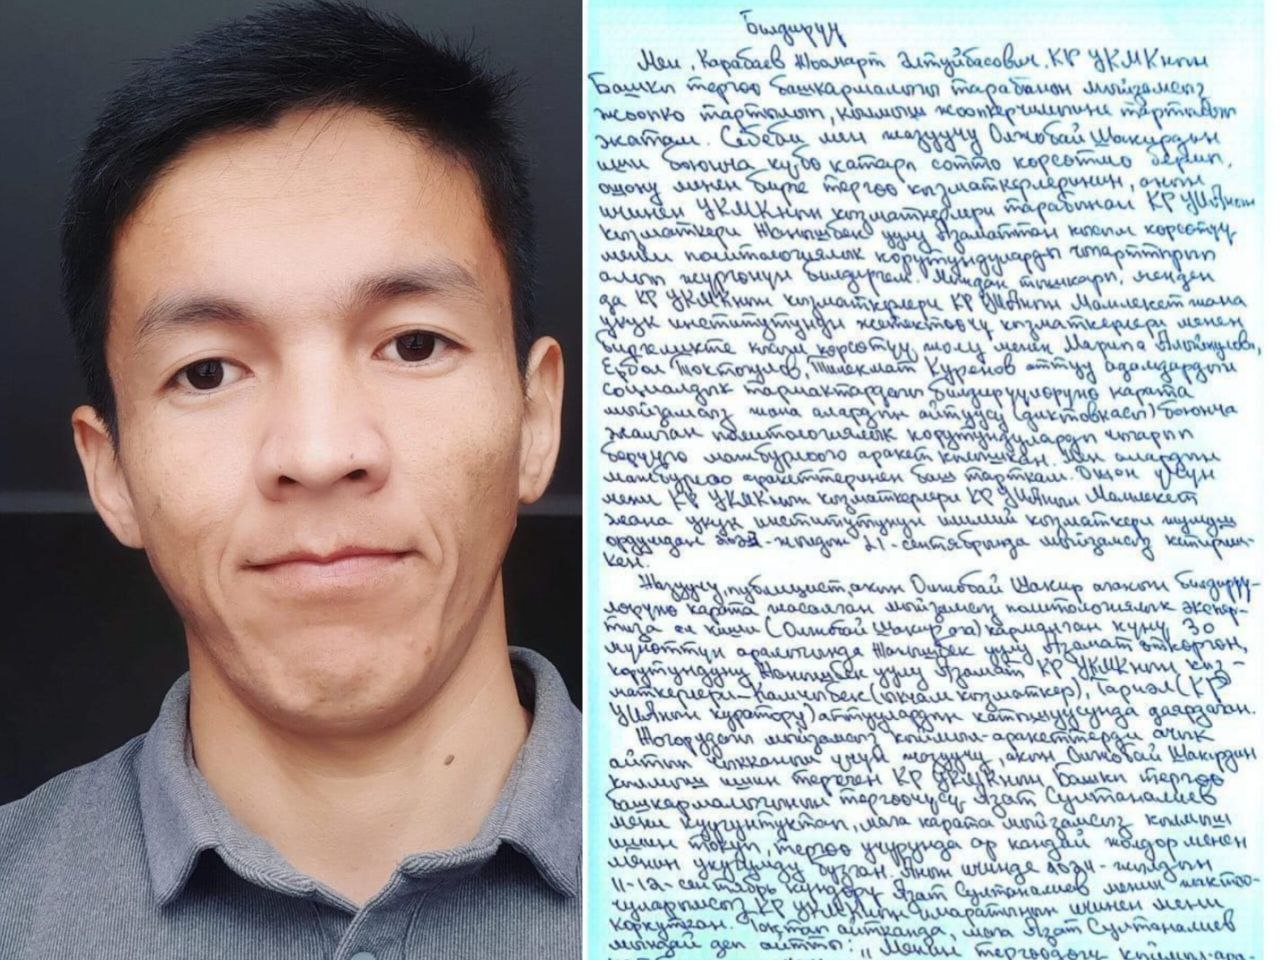 Билдирүү
Мен, Карабаев Жоомарт Элтуйбасович, КР УКМКнын
Башкы тергөө башкармалыгы тарабынан мыйзамсыз
жоопко тартылып, кылмыш жоопкерчилигине тартылып
жатам. Себеби мен жазуучу Олжобай Шакирдин
иши боюнча күбө катары сотто көрсөтмө берип,
ошону менен бирге тергөө кызматкерлеринин, анын
ичинен УКМКнын кызматкерлери тарабынан КР УИАнын
кызматкери Жанышбек уулу Азаматтан кысым көрсөтүү
менен политологиялык корутундуларды чыгарттырып
алып жүргөнүн билдиргем. Мындан тышкары, менден
да КР УКМКнын кызматкерлери КР УИАнын Мамлекет жана
укук институтунун жетектөөчү кызматкерлери менен
биргеликте кысым көрсөтүү жолу менен Марипа
Ербол Токтокулов, Тилекмат Куренов аттуу адамдардын
социалдык тармактардагы билдирүүлөрүнө карата
мыйзамсыз жана алардын айтуусу (диктовкасы) боюнча
жалган политологиялык корутундуларды чыгарып
берүүгө мажбурлоого аракет кылышкан. Мен алардын
мажбурлоо аракеттеринен баш тарткам. Ошон үчүн
мени КР УКМКнын кызматкерлери КР УИАнын Мамлекет
жана укук институтунун илимий кызматкери жумуш
ордунан -жылдын 21-сентябрында мыйзамсыз кетириш-
кен.
Жазуучу, публицист, акын Олжобай Шакир агайын билдирүү-
лөрүнө карата жасалган мыйзамсыз политологиялык экспер-
тиза ал киши (Олжобай Шакир ага) кармалган күнү, 30
мүнөттүн аралыгында Жанышбек уулу Азамат өткөргөн,
корутундуну Жанышбек уулу Азамат КР УКМКнын кыз-
маткерлери - Камчыбек (ыкчам кызматкер), Тариэл (КР
УИАнын куратору) аттуулардын катышуусунда даярдаган.
Жогорудагы мыйзамсыз кыймыл-аракеттерди ачык
айтып чыкканым үчүн жазуучу, акын Олжобай Шакирдин
кылмыш ишин тергеген КР УКМКнын Башкы тергөө
башкармалыгынын тергөөчүсү Азат Султаналиев
мени куугунтуктап, мага карата мыйзамсыз кылмыш
ишин токуп, тергөө учурунда ар кандай жолдор менен
менин укугумду бузган. Анын ичинде -жылдын
11-12-сентябрь күндөрү Азат Султаналиев менин жактоо-
чуларымсыз КР УКМКнын имаратынын ичинен мени
коркуткан. Тактап айтканда, мага Азат Султаналиев
мындай деп айтты: "Менин тергөөдөгү кыймыл-ара-